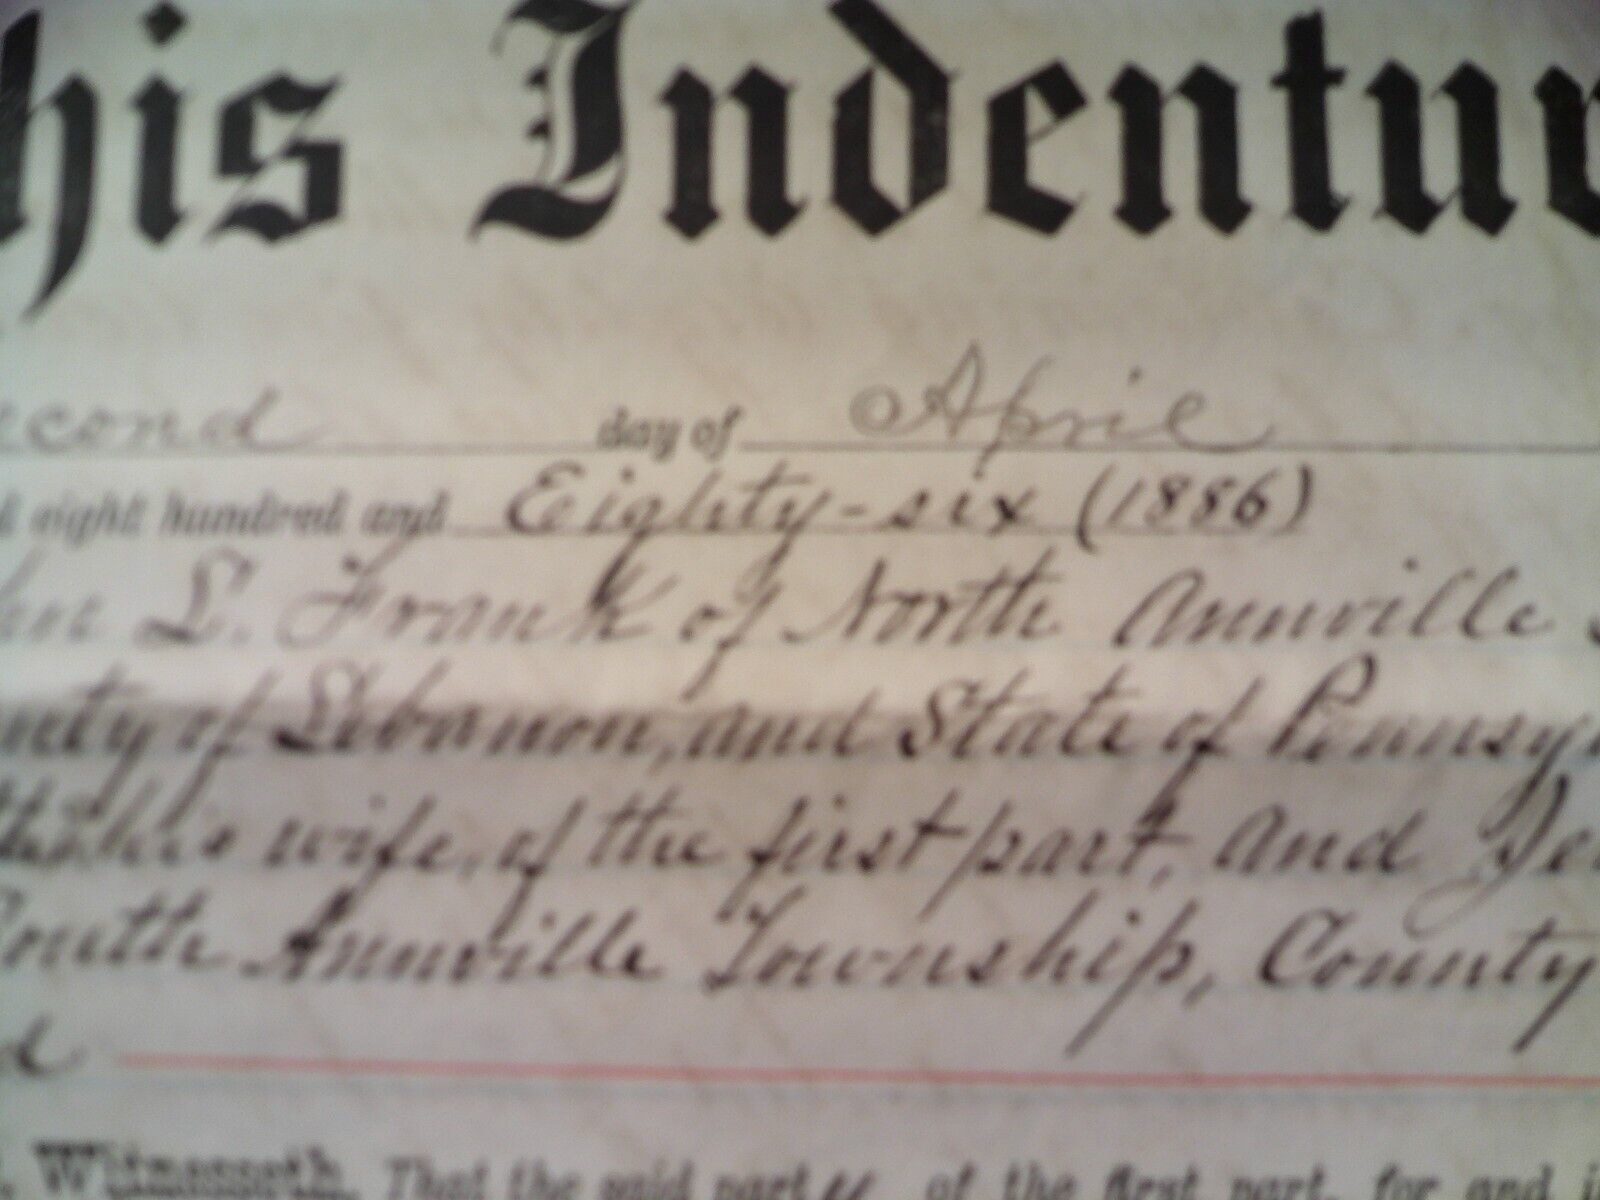 his Indentur
econd day of April
d eight hundred and Eighty-six (1886)
hn L. Frank of North Annville
unty of Lebanon, and State of Pennsy
his wife, of the first part, and
South Annville Township, County
d
Witnesseth, That the said party of the first part, for and i